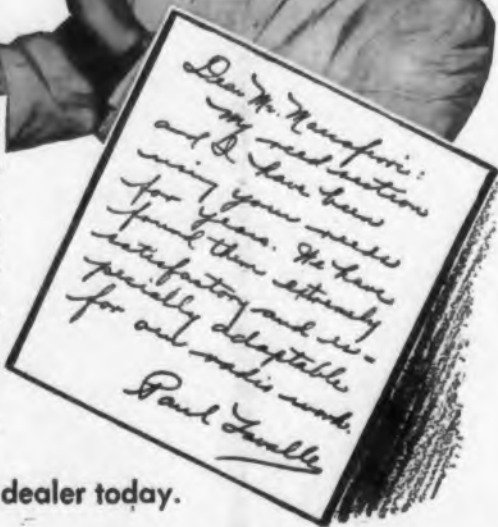 Dear Mr. Maccaferri:
My reed section
and I have been
using your reeds
for years. We have
found them extremely
satisfactory and es-
pecially adaptable
for our radio work.
Paul Lavalle
dealer today.